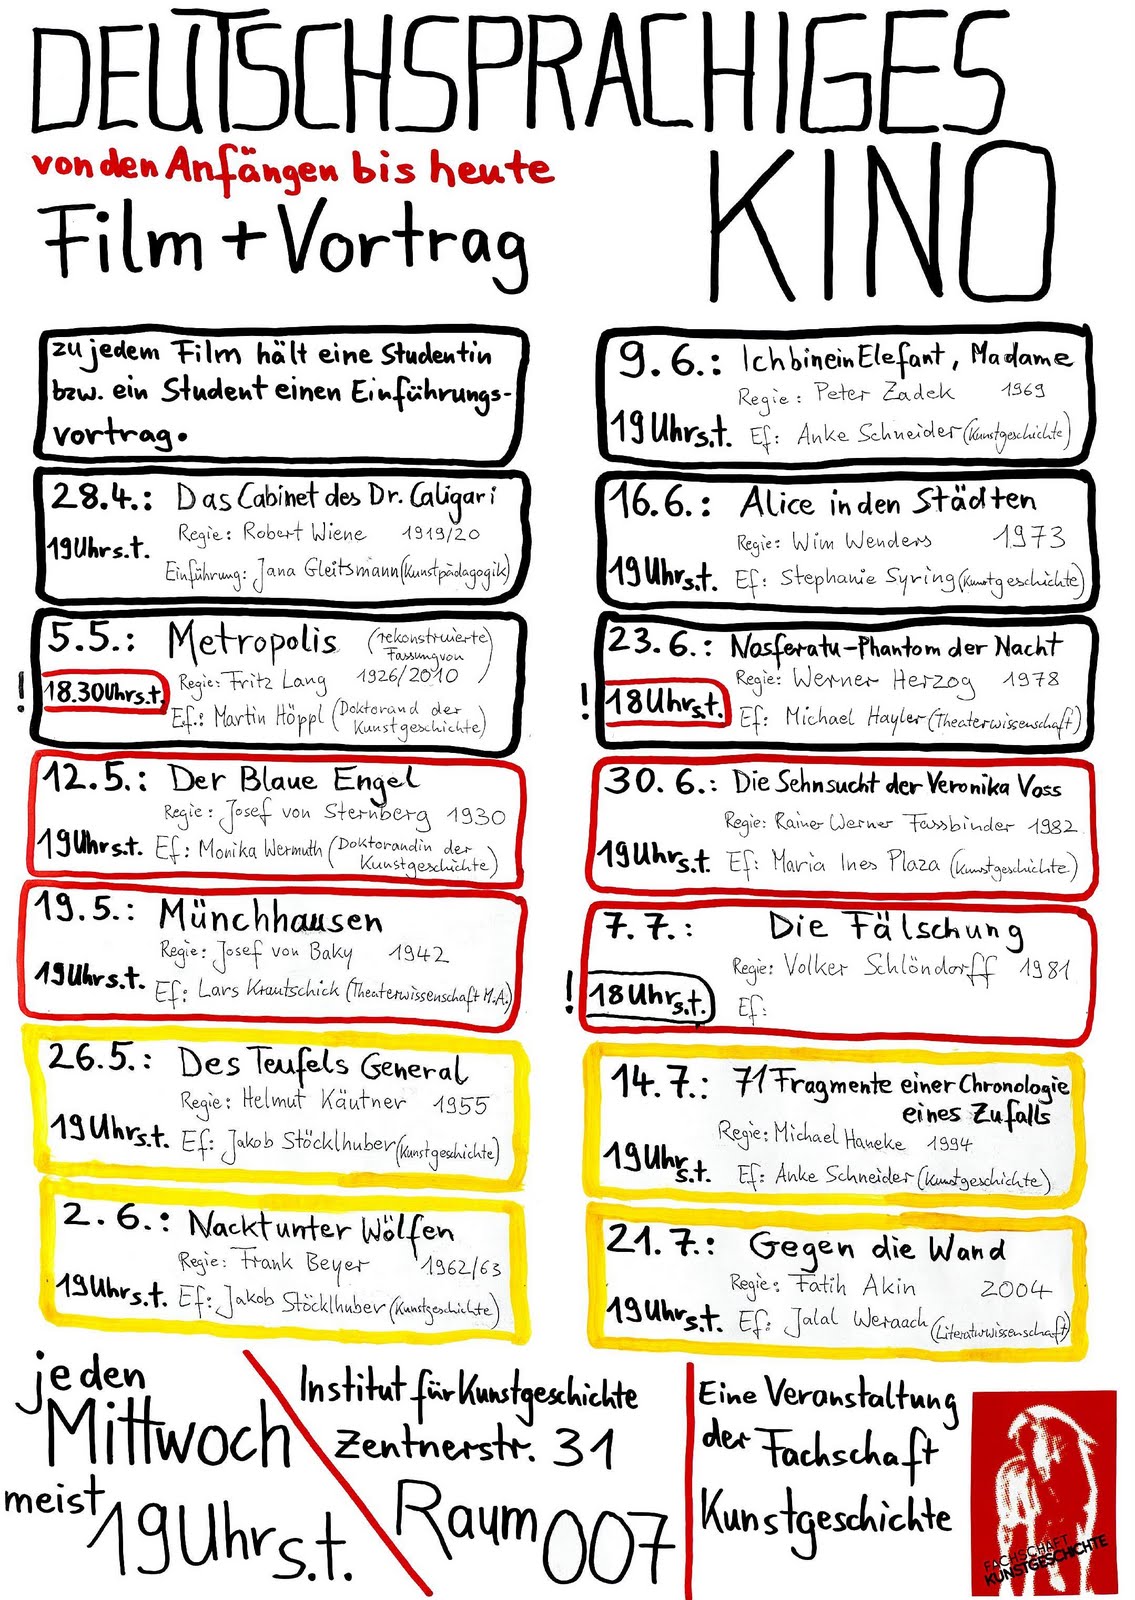 DEUTSCHSPRACHIGES
KINO
von den Anfängen bis heute
Film + Vortrag
zu jedem Film hält eine Studentin
bzw. ein Student einen Einführungs-
vortrag.
28.4.: Das Cabinet des Dr. Caligari
Regie: Robert Wiene 1919/20
19 Uhr s.t.
Einführung: Jana Gleitsmann (Kunstpädagogik)
5.5.: Metropolis (rekonstruierte
Fassung von
Regie: Fritz Lang 1926/2010)
! 18.30 Uhr s.t.
Ef.: Martin Höppl (Doktorand der
Kunstgeschichte)
12.5.: Der Blaue Engel
Regie: Josef von Sternberg 1930
19 Uhr s.t. Ef: Monika Wermuth (Doktorandin der
Kunstgeschichte)
19.5.: Münchhausen
Regie: Josef von Baky 1942
19 Uhr s.t. Ef: Lars Krautschick (Theaterwissenschaft M.A.)
26.5.: Des Teufels General
Regie: Helmut Käutner 1955
19 Uhr s.t. Ef: Jakob Stöcklhuber (Kunstgeschichte)
2.6.: Nackt unter Wölfen
Regie: Frank Beyer 1962/63
19 Uhr s.t. Ef: Jakob Stöcklhuber (Kunstgeschichte)
9.6.: Ich bin ein Elefant, Madame
Regie: Peter Zadek 1969
19 Uhr s.t. Ef: Anke Schneider (Kunstgeschichte)
16.6.: Alice in den Städten
Regie: Wim Wenders 1973
19 Uhr s.t. Ef: Stephanie Syring (Kunstgeschichte)
23.6.: Nosferatu-Phantom der Nacht
Regie: Werner Herzog 1978
! 18 Uhr s.t. Ef: Michael Hayler (Theaterwissenschaft)
30.6.: Die Sehnsucht der Veronika Voss
Regie: Rainer Werner Fassbinder 1982
19 Uhr s.t. Ef: Maria Ines Plaza (Kunstgeschichte)
7.7.: Die Fälschung
Regie: Volker Schlöndorff 1981
! 18 Uhr s.t. Ef:
14.7.: 71 Fragmente einer Chronologie
eines Zufalls
Regie: Michael Haneke 1994
19 Uhr s.t. Ef: Anke Schneider (Kunstgeschichte)
21.7.: Gegen die Wand
Regie: Fatih Akin 2004
19 Uhr s.t. Ef: Jalal Weraach (Literaturwissenschaft)
jeden
Mittwoch
meist 19 Uhr s.t.
Institut für Kunstgeschichte
Zentnerstr. 31
Raum 007
Eine Veranstaltung
der Fachschaft
Kunstgeschichte
FACHSCHAFT
KUNSTGESCHICHTE